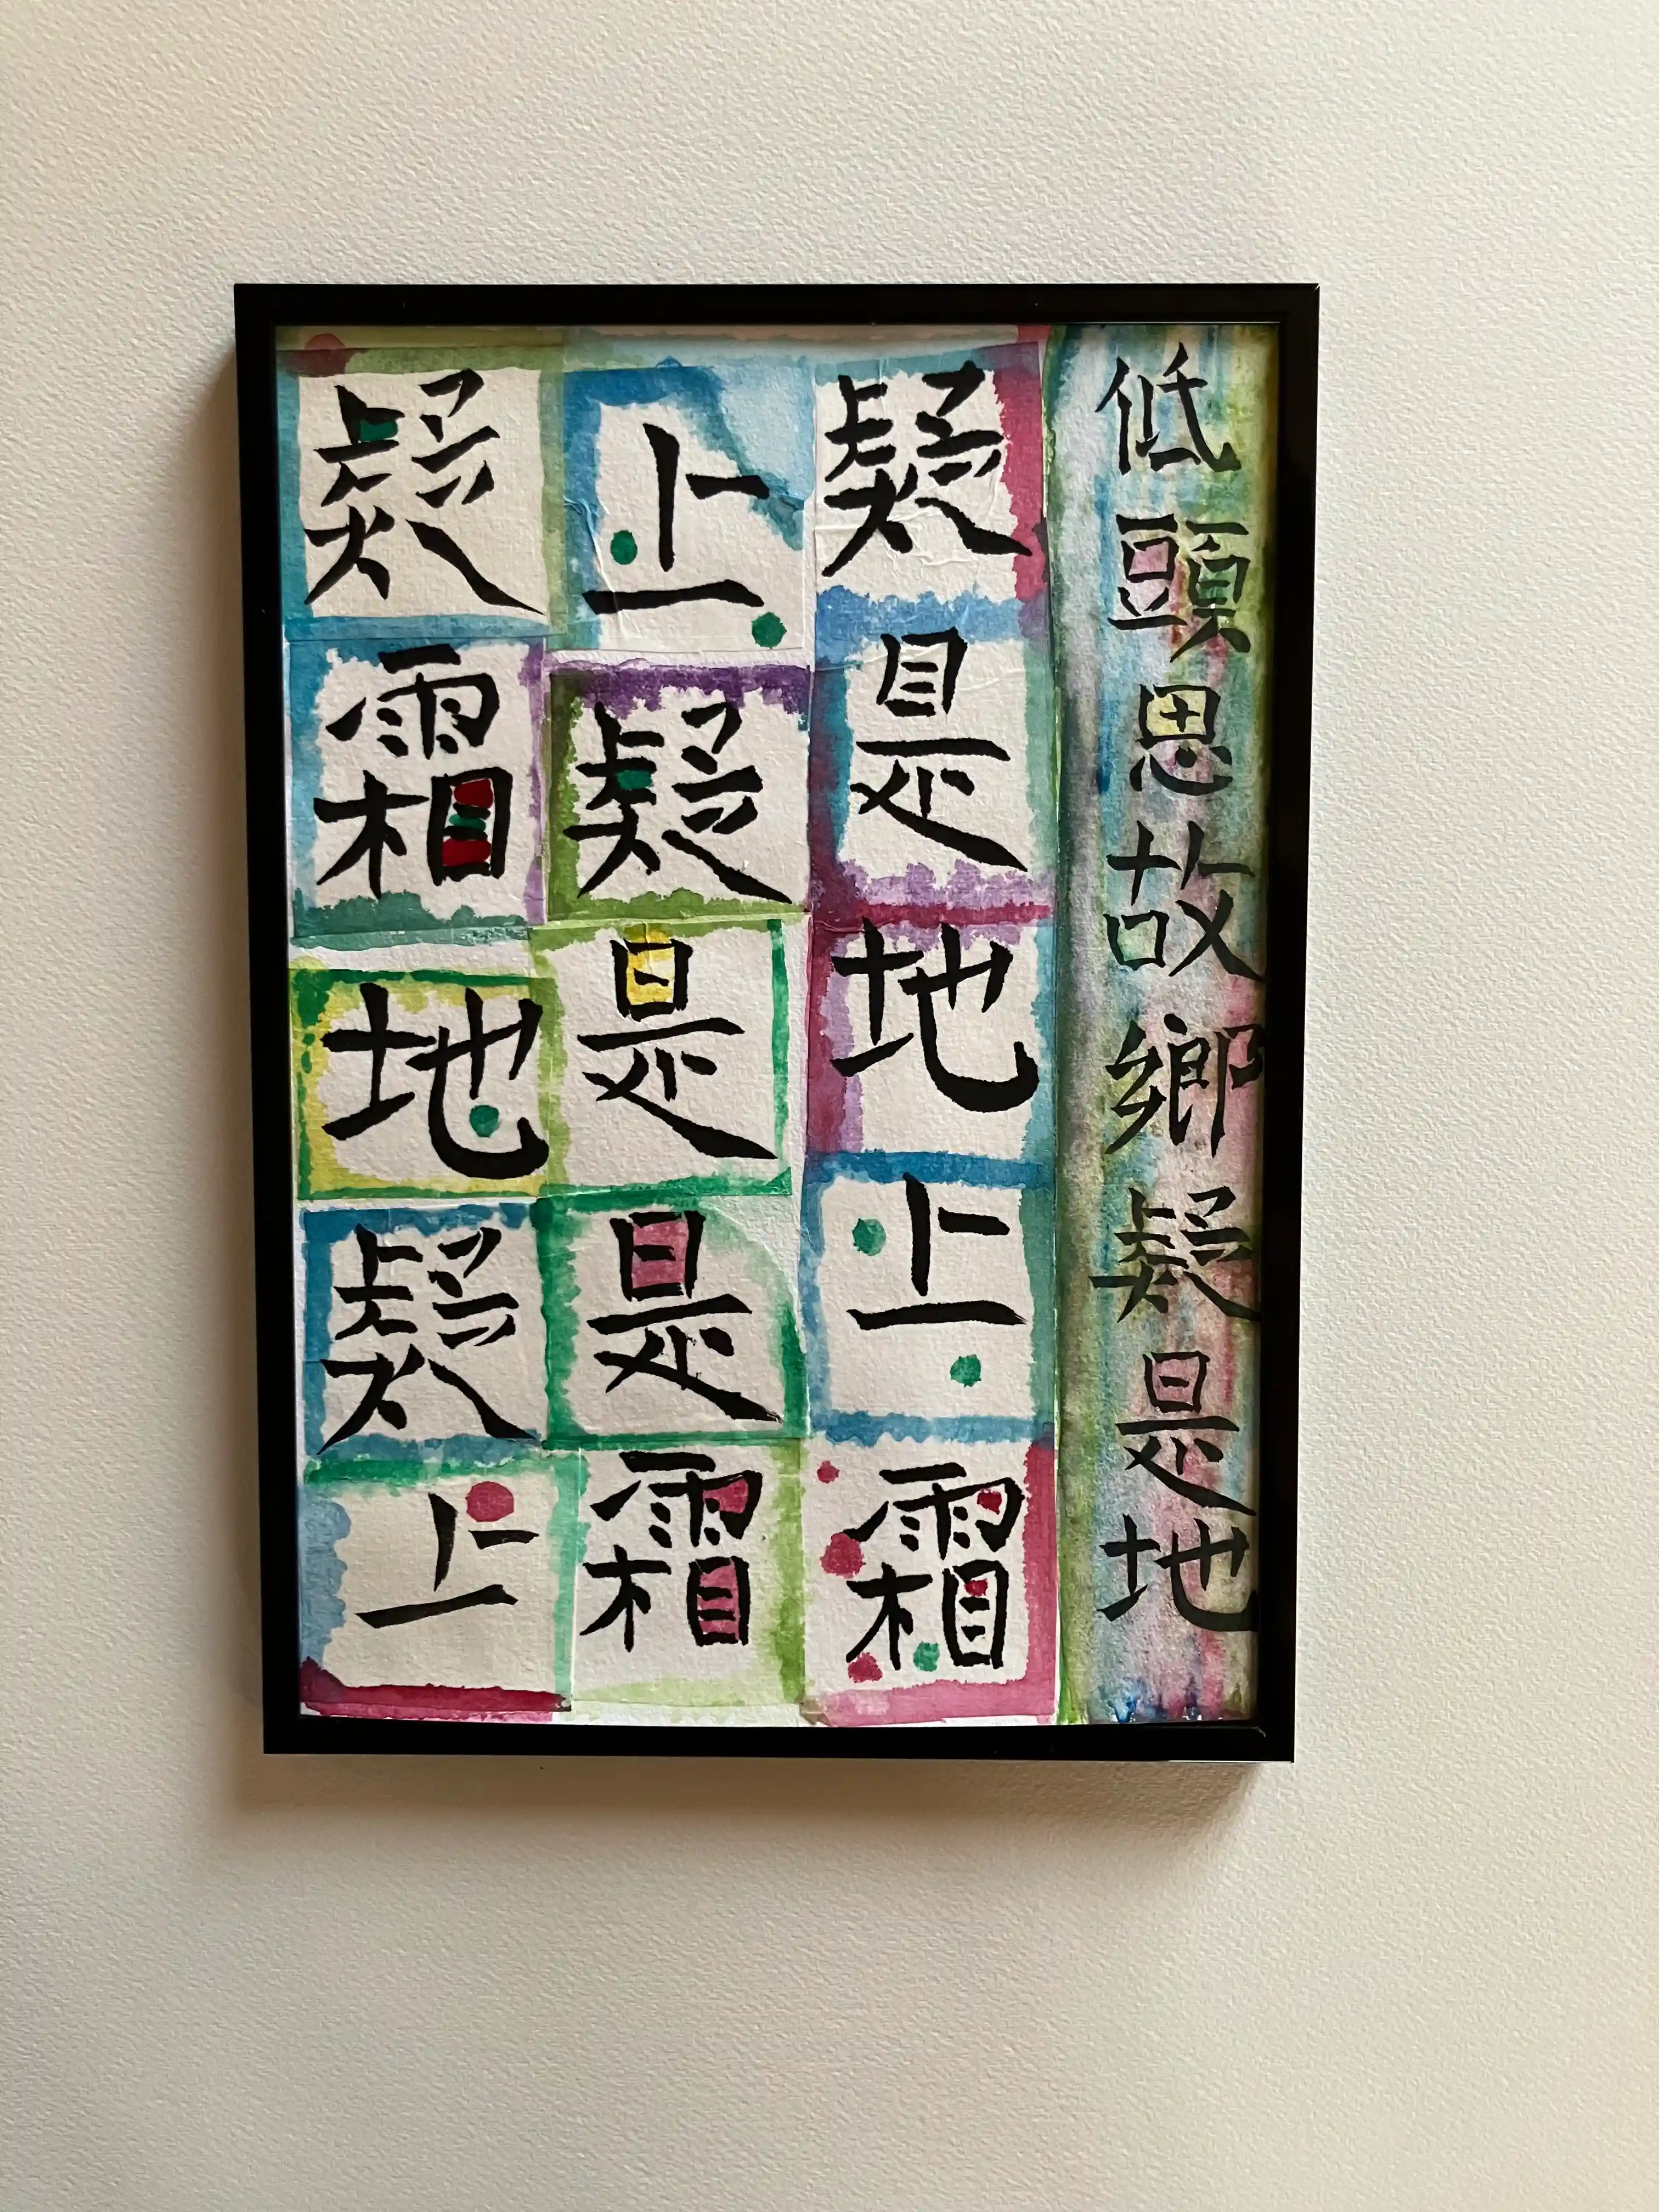 低頭思故鄉疑是地
疑是地上霜
上疑是是霜
疑霜地疑上